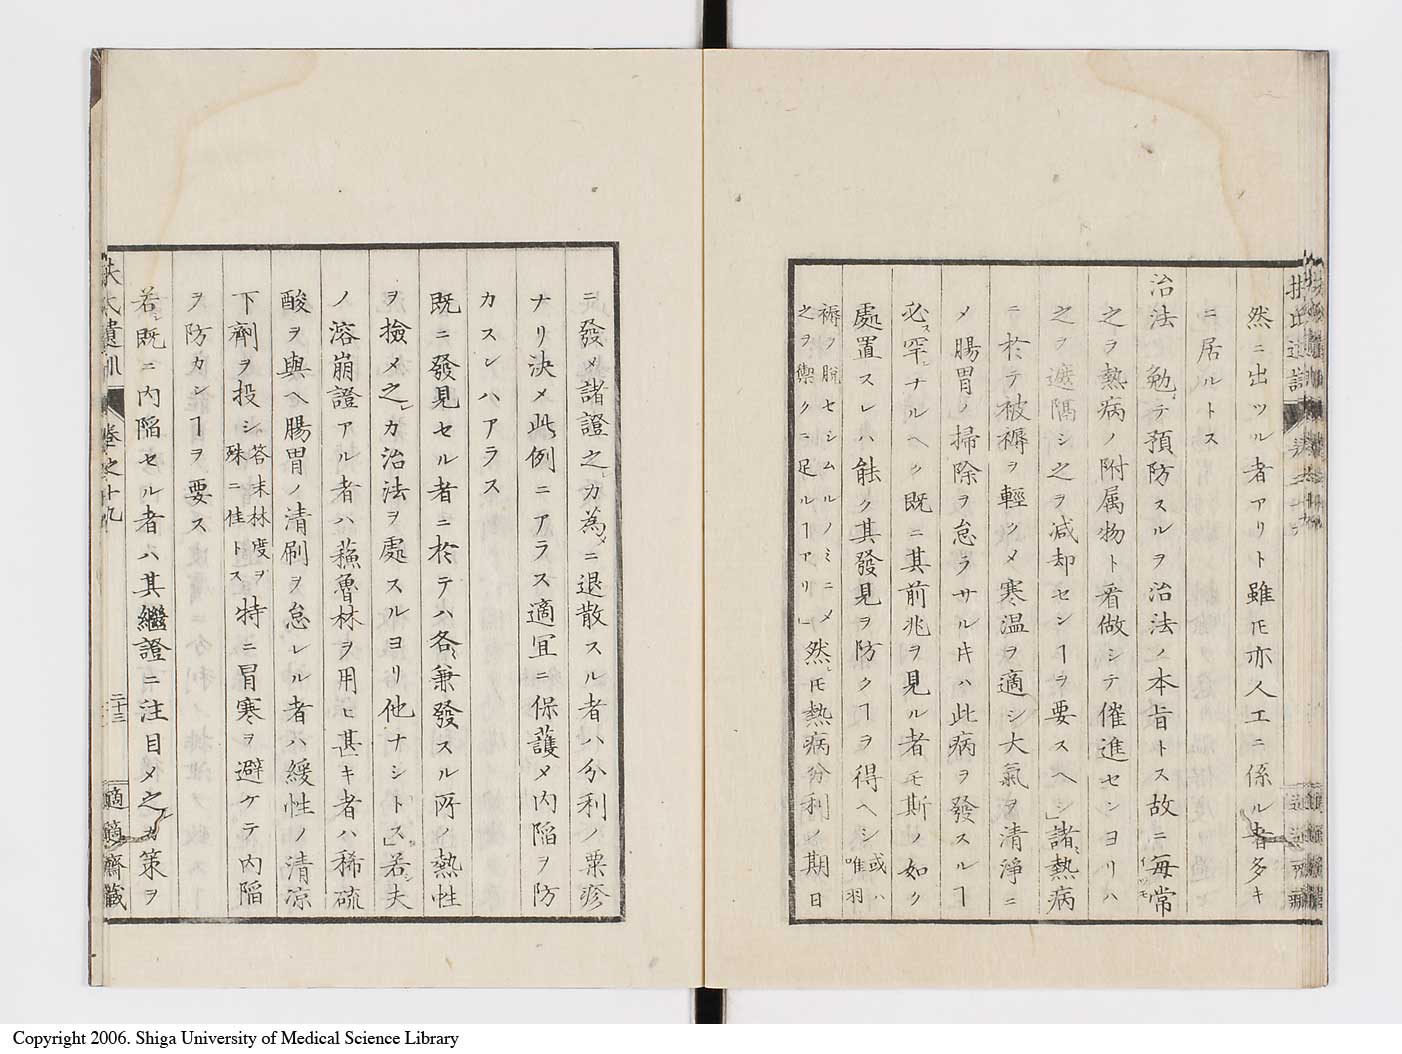 然ニ出ツル者アリト雖𪜈亦人工ニ係ル者多キ
ニ居ルトス
治法 勉テ預防スルヲ治法ノ本旨トス故ニ毎常
之ヲ熱病ノ附属物ト看做シテ催進センヨリハ
之ヲ遮隔シ之ヲ減却センヿヲ要スヘシ」諸熱病
ニ於テ被褥ヲ輕クメ寒温ヲ適シ大氣ヲ清淨ニ
メ腸胃ノ掃除ヲ怠ラサル𪜈ハ此病ヲ發スルヿ
必ス罕レナルヘク既ニ其前兆ヲ見ル者モ斯ノ如ク
處置スレハ能ク其發見ヲ防クヿヲ得ヘシ或ハ唯羽
褥ヲ脱セシムルノミニメ之ヲ禦クニ足ルヿアリ」然レ𪜈熱病分利ノ期日
ニ發メ諸證之レカ為メニ退散スル者ハ分利ノ粟疹
ナリ決メ此例ニアラス適冝ニ保護メ内陷ヲ防
カスンハアラス
既ニ發見セル者ニ於テハ各〻兼發スル所ノ熱性
ヲ撿メ之レカ治法ヲ處スルヨリ他ナシトス」若シ夫
ノ溶崩證アル者ハ蘓魯林ヲ用ヒ甚キ者ハ稀硫
酸ヲ與ヘ腸胃ノ清刷ヲ怠レル者ハ緩性ノ清凉
下劑ヲ投シ答末林度ヲ殊ニ佳トス特ニ冒寒ヲ避ケテ内陷
ヲ防カンヿヲ要ス
若シ既ニ内陷セル者ハ其繼證ニ注目メ之レカ策ヲ
扶氏遺訓 卷之十九 二十三 適適齋藏